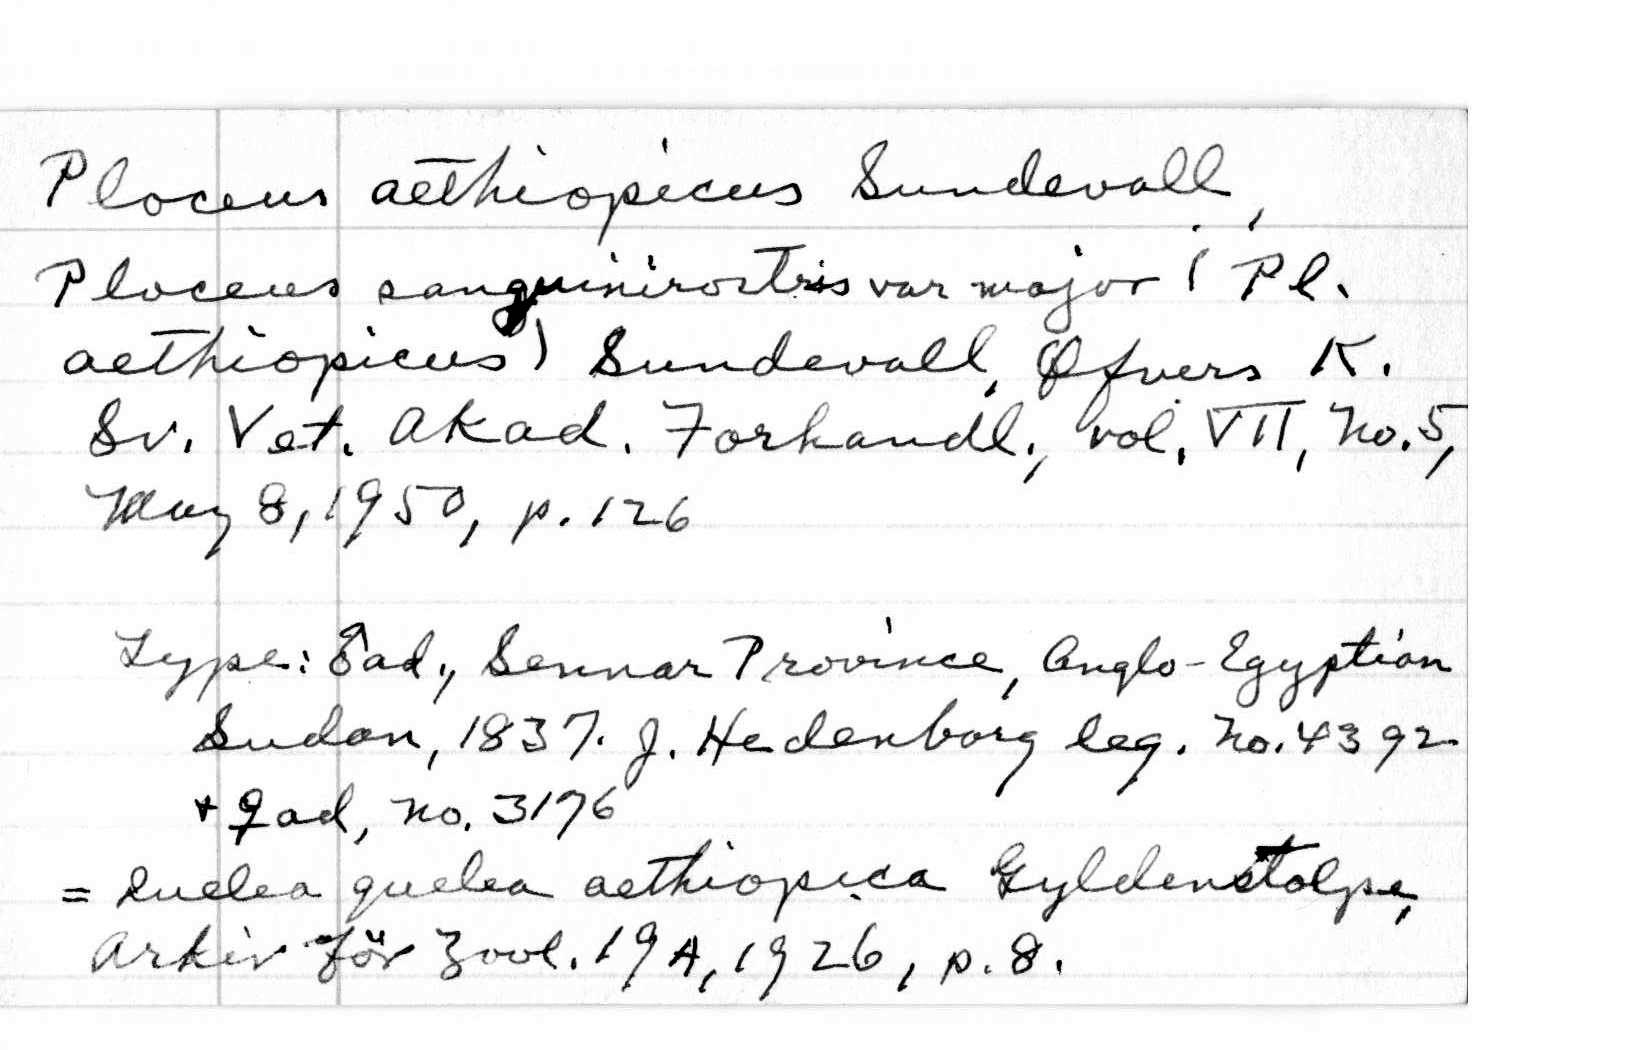 Ploceus aethiopicus Sundevall,
Ploceus sanguinirostris var major (Pl.
aethiopicus) Sundevall, Øfvers K.
Sv. Vet. Akad. Forhandl., vol. VII, No. 5,
May 8, 1950, p. 126
Type: ♂ ad., Sennar Province, Anglo-Egyptian
Sudan, 1837. J. Hedenborg leg. No. 4392
+ ♀ ad, No. 3176
= Quelea quelea aethiopica Gyldenstolpe,
Arkiv för Zool. 19A, 1926, p. 8.